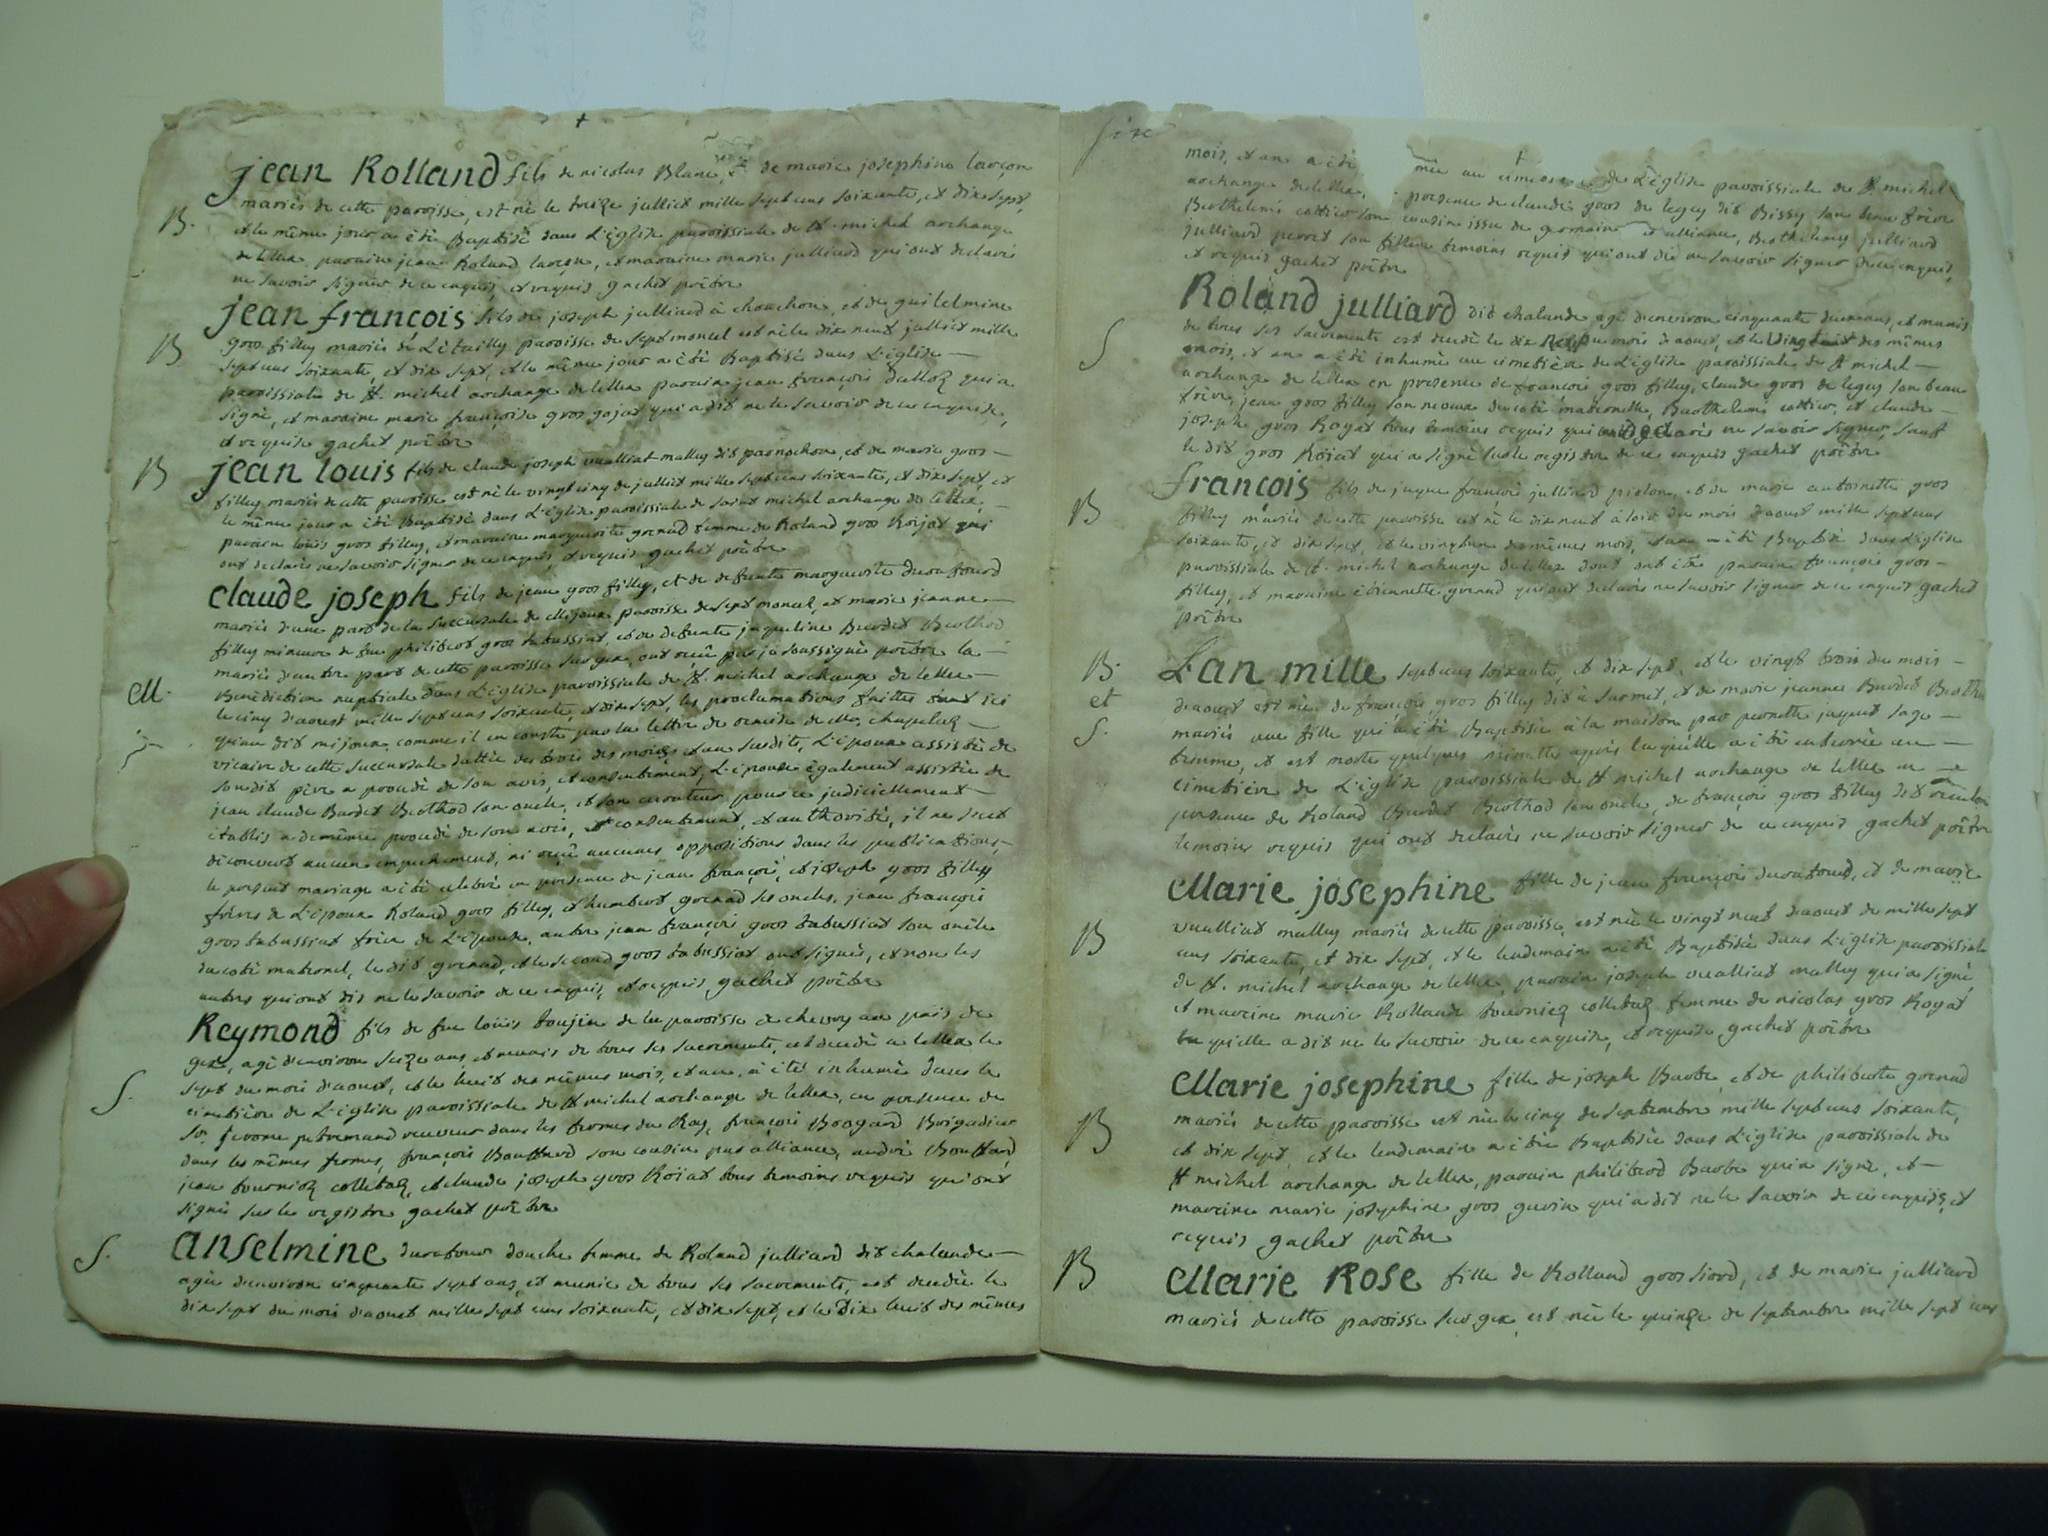 jean Rolland fils de nicolas Blanc, et de marie josephine lançon
mariés de cette paroisse, est né le treize julliet mille sept cens soixante, et dix sept,
B.
et le même jour a été Baptisé dans L'église paroissiale de st. michel archange
de lellex, parain jean Roland lançon, et maraine marie julliard qui ont declaré
ne savoir signer de ce enquis, et requis gachet prêtre
jean françois fils de joseph julliard à chouchou, et de guilelmine
gros filley mariés de L'étailly paroisse de septmoncel est né le dix neuf julliet mille
B
sept cens soixante, et dix sept, et le même jour a été Baptisé dans L'église
paroissiale de st. michel archange de lellex parain jean françois qui a
signé, et maraine marie françoise gros gojat qui a dit ne le savoir de ce enquise,
et requise gachet prêtre
B
jean louis fils de claude joseph vualliat malley dit parnochon, et de marie gros
filley mariés de cette paroisse est né le vingt cinq de julliet mille sept cens soixante, et dix sept, et
le même jour a été Baptisé dans L'église paroissiale de saint michel archange de lellex,
parain loüis gros filley, et maraine marguerite grenad femme de Roland gros Roijat qui
ont declaré ne savoir signer de ce enquis, et requis gachet prêtre
claude joseph fils de jean gros filley, et de defunte marguerite ducrufourd
mariés d'une part de la succursale de Mijoux paroisse de septmoncel, et marie jeanne
filley mineure de feu philibert gros tabussiat, et de defunte jaqueline Burdet Berthod
mariés d'autre part de cette paroisse sur gex, ont reçu par je soussigné prêtre la
M.
Benediction nuptiale dans L'église paroissiale de st. michel archange de lellex
le cinq d'aoust mille sept cens soixante, et dix sept, les proclamations faittes tant ici
qu'au dit mijoux, comme il en conste par la lettre de remise de mr. chapeluz
vicaire de cette succursale dattée des trois des mois, et an susdits, L'époux assisté de
sondit père a procedé de son avis, et consentement, L'épouse également assistée de
jean claude Burdet Berthod son oncle, et son curateur pour ce judiciellement
établis a de même procedé de son avis, et consentement, et authorité, il ne s'est
découvert aucun empechement, ni reçu aucunes oppositions dans les publications,
le present mariage a été celebré en presence de jean françois, et joseph gros filley
frères de L'époux Roland gros filley, et humbert grenad ses oncles, jean françois
gros tabussiat frère de L'épouse, autre jean françois gros tabussiat son oncle
du coté maternel, le dit grenad, et le second gros tabussiat ont signés, et non les
autres qui ont dis ne le savoir de ce enquis, et requis gachet prêtre
Reymond fils de feu loüis toujin de la paroisse de chevry au païs de
gex, agé d'environ seize ans, et munis de tous ses sacrements, est decedé a lellex le
S.
sept du mois d'aoust, et le huit des mêmes mois, et an, a été inhumé dans le
cimetière de L'église paroissiale de st michel archange de lellex, en presence de
Sr. jerome putremand receveur dans les fermes du Roy, françois Boogard Brigadier
dans les mêmes fermes, françois Bouttard son cousin par alliance, andré Bouttard,
jean tournier colletaz, et claude joseph gros Roiat tous temoins requis qui ont
signés sur le registre gachet prêtre
S.
anselmine ducrufour douche femme de Roland julliard dit chalande
agée d'environ cinquante sept ans, et munie de tous ses sacrements, est decedée le
dix sept du mois d'aoust mille sept cens soixante, et dix sept, et le dix huit des mêmes
six
mois, et an a été mée au cimetiere de L'église paroissiale de st. michel
archange de lellex, presence de claude gros de legey dit Bissy son beau frère
Berthelemi cottier son cousin issu de germain et alliance, Berthelemy julliard
julliard perret son filleu temoins requis qui ont dis ne savoir signer de ce enquis,
et requis gachet prêtre
Roland julliard dit chalande agé d'environ cinquante deux ans, et munis
de tous ses sacrements est decedé le dix du mois d'aoust, et le vingt des mêmes
S
mois, et an a été inhumé au cimetière de L'église paroissiale de st michel
archange de lellex en presence de françois gros filley, claude gros de legey son beau
frère, jean gros filley son neveux du coté maternelle, Berthelemi cottier, et claude
joseph gros Royat tous temoins requis qui ont declarés ne savoir signer, sauf
le dit gros Roiat qui a signé sur le registre de ce enquis gachet prêtre
B
françois fils de jaque françois julliard piolon, et de marie antoinette gros
filley mariés de cette paroisse est né le dix neuf du mois d'aoust mille sept cens
soixante, et dix sept, et le vingt un des mêmes mois, et an a été Baptisé dans L'église
paroissiale de st. michel archange de lellex dont ont été parain françois gros
filley, et maraine étiennette grenad qui ont declarés ne savoir signer de ce enquis gachet
prêtre
B.
et
S.
L'an mille sept cens soixante, et dix sept, et le vingt trois du mois
d'aoust est née de françois gros filley dit à surmet, et de marie jeanne Burdet Berthod
mariés une fille qui a été Baptisée à la maison par pernette jaquet sage
femme, et est morte quelques minutte après laquelle a été enterrée au
cimetière de L'église paroissiale de st michel archange de lellex en
presence de Roland Burdet Berthod son oncle, de françois gros filley dit
temoins requis qui ont declarés ne savoir signer de ce enquis gachet prêtre
Marie josephine fille de jean françois ducrufourd, et de marie
vualliat malley mariés de cette paroisse, est née le vingt neuf d'aoust de mille sept
B
cens soixante, et dix sept, et le lendemain a été Baptisée dans L'église paroissiale
de st. michel archange de lellex, parain joseph vualliat malley qui a signé,
et maraine marie Rollande tournier colletaz femme de nicolas gros Royat
laquelle a dit ne le savoir de ce enquise, et requise gachet prêtre
Marie josephine fille de joseph Barbe, et de philiberte grenad
mariés de cette paroisse est née le cinq de septembre mille sept cens soixante,
B
et dix sept, et le lendemain a été Baptisée dans L'église paroissiale de
st michel archange de lellex, parain philiberd Barbe qui a signé, et
maraine marie josephine gros gurin qui a dit ne le savoir de ce enquise, et
requis gachet prêtre
B
Marie Rose fille de Rolland gros siord, et de marie julliard
mariés de cette paroisse sur gex est née le quinze de septembre mille sept cens